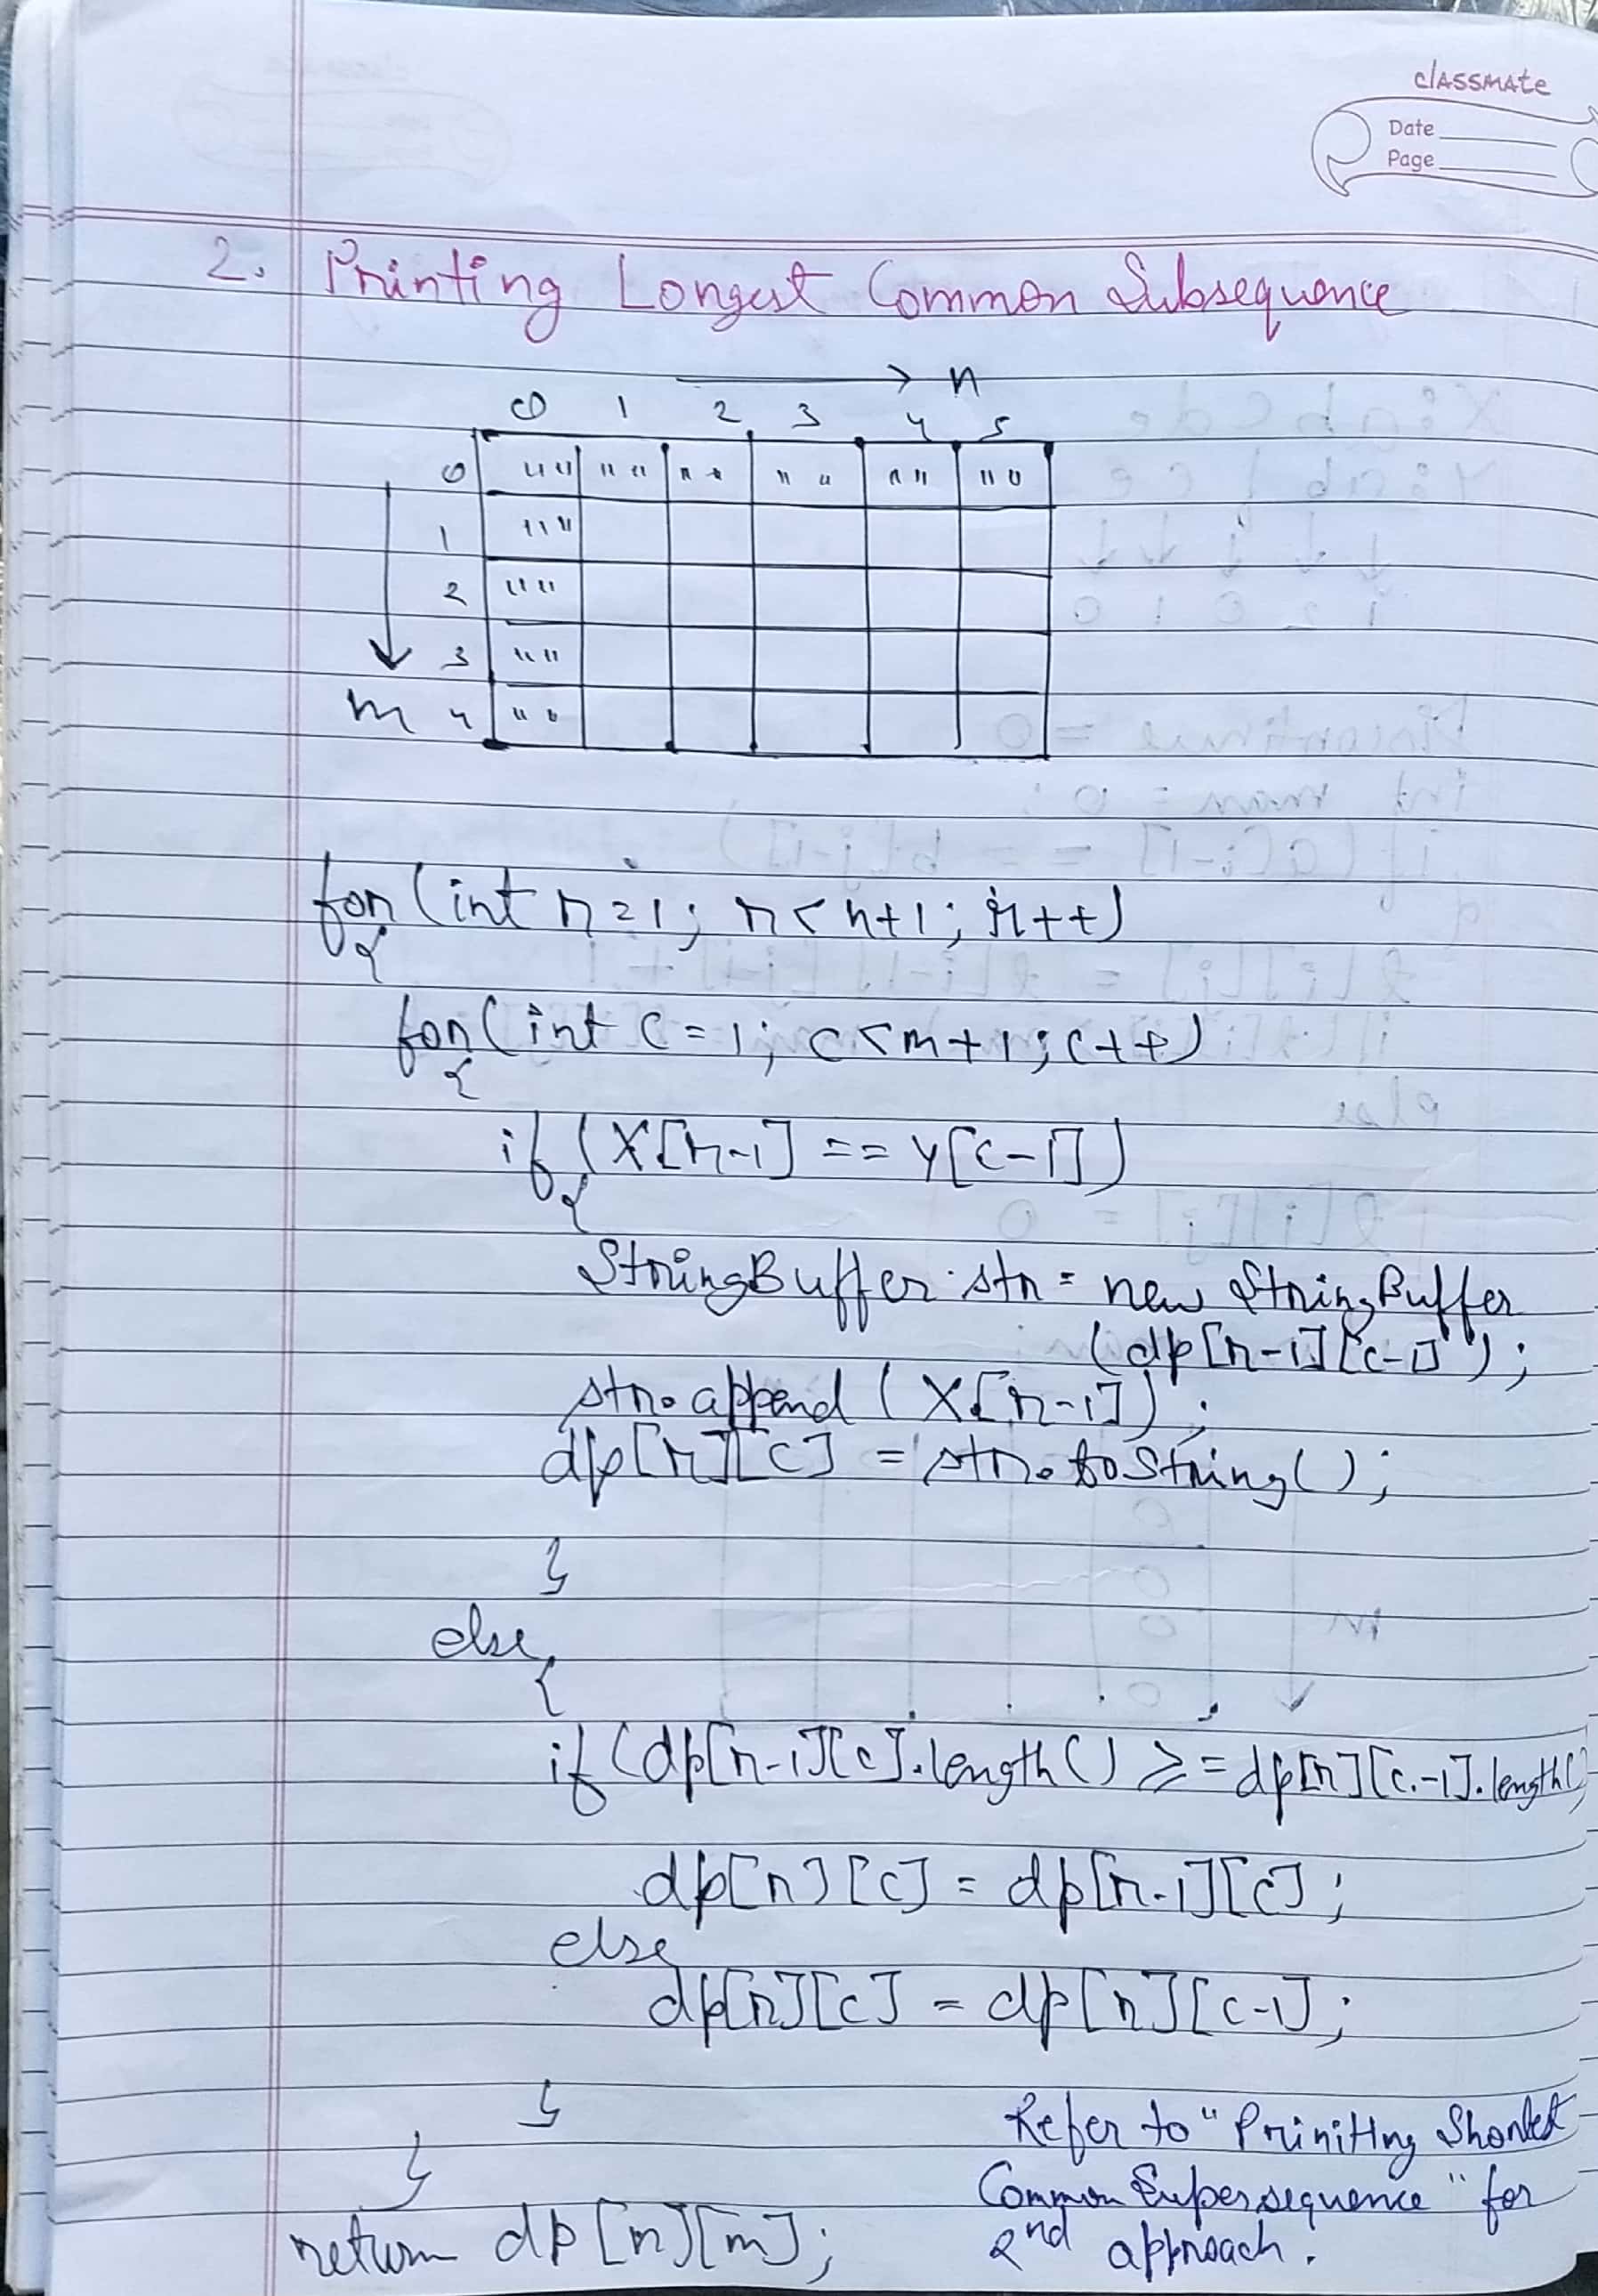 classmate
Date
Page
2. Printing Longest Common Subsequence
→ n
0 1 2 3 4 5
0 "" "" "" "" "" ""
1 ""
2 ""
3 ""
m 4 ""
for (int r=1; r<n+1; r++)
{
for (int c=1; c<m+1; c++)
{
if (X[r-1] == Y[c-1])
{
StringBuffer str = new StringBuffer
(dp[r-1][c-1]);
str.append (X[r-1]);
dp[r][c] = str.toString();
}
else
{
if (dp[r-1][c].length() >= dp[r][c-1].length()
dp[r][c] = dp[r-1][c];
else
dp[r][c] = dp[r][c-1];
}
}
return dp[n][m];
Refer to "Prinitting Shortest
Common Supersequence" for
2nd approach.